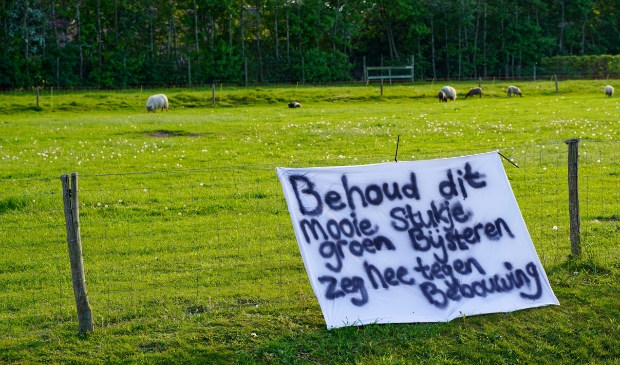 Behoud dit
mooie stukje
groen Bijsteren
zeg nee tegen
Bebouwing